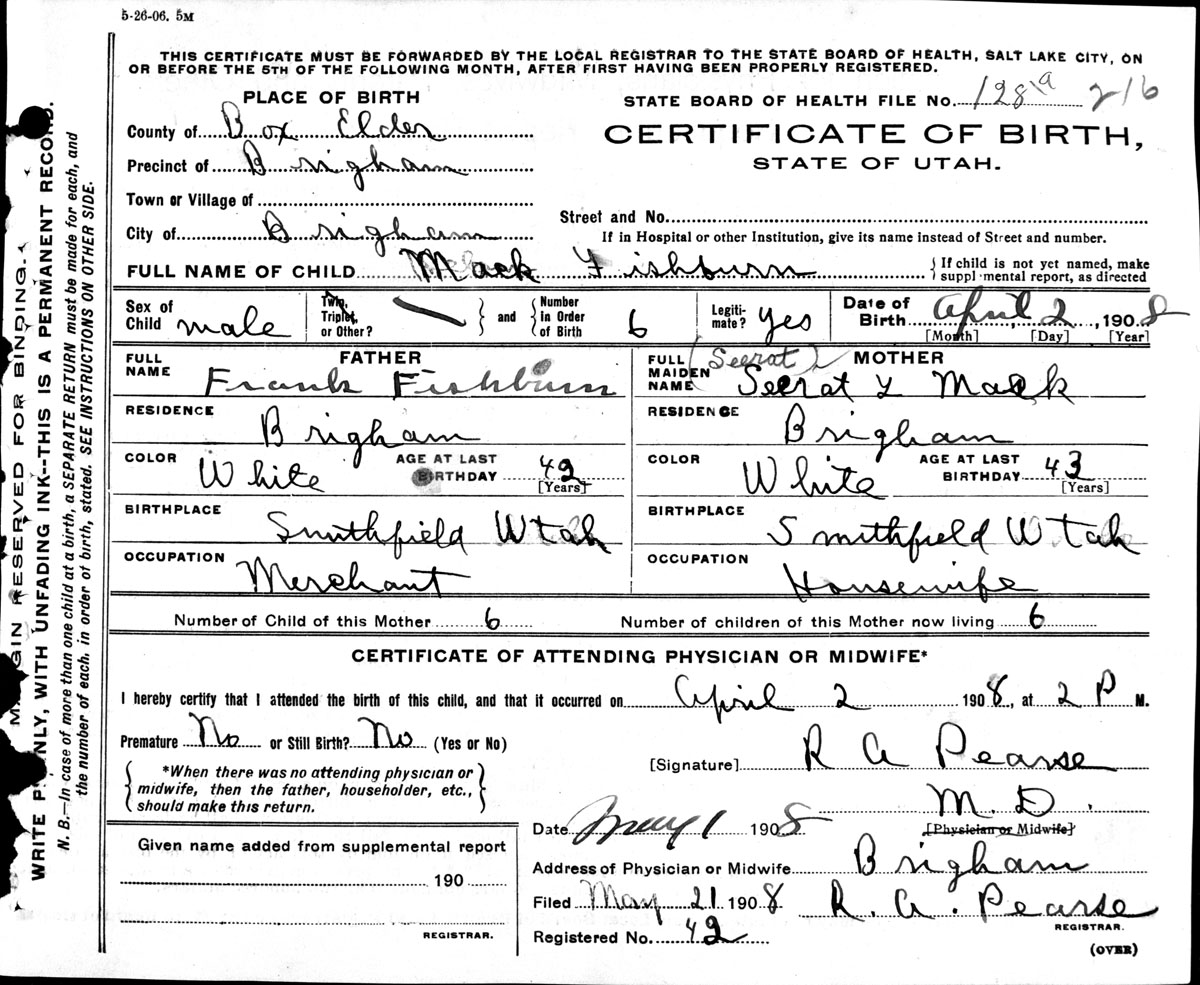 5-26-06. 5M
THIS CERTIFICATE MUST BE FORWARDED BY THE LOCAL REGISTRAR TO THE STATE BOARD OF HEALTH, SALT LAKE CITY, ON
OR BEFORE THE 5TH OF THE FOLLOWING MONTH, AFTER FIRST HAVING BEEN PROPERLY REGISTERED.
PLACE OF BIRTH
STATE BOARD OF HEALTH FILE No. 128 19 216
County of Box Elder
CERTIFICATE OF BIRTH,
Precinct of Brigham
STATE OF UTAH.
Town or Village of
Street and No.
City of Brigham
If in Hospital or other Institution, give its name instead of Street and number.
FULL NAME OF CHILD Mack Fishburn
{ If child is not yet named, make
suppl mental report, as directed
Sex of Child male
Twin, Triplet, or Other? } and { Number in Order of Birth 6
Legiti-mate? yes
Date of Birth April 2, 1908
[Month] [Day] [Year]
FATHER
FULL NAME Frank Fishburn
MOTHER
(Seerat)
FULL MAIDEN NAME Seerat L Mack
RESIDENCE Brigham
RESIDENCE Brigham
COLOR White AGE AT LAST BIRTHDAY 42 [Years]
COLOR White AGE AT LAST BIRTHDAY 43 [Years]
BIRTHPLACE Smithfield Utah
BIRTHPLACE Smithfield Utah
OCCUPATION Merchant
OCCUPATION Housewife
Number of Child of this Mother 6 Number of children of this Mother now living 6
CERTIFICATE OF ATTENDING PHYSICIAN OR MIDWIFE*
I hereby certify that I attended the birth of this child, and that it occurred on April 2 1908, at 2 P M.
Premature No or Still Birth? No (Yes or No)
[Signature] R A Pearse
{ *When there was no attending physician or
midwife, then the father, householder, etc.,
should make this return. }
M. D.
[Physician or Midwife]
Date May 1 1908
Given name added from supplemental report
190
REGISTRAR.
Address of Physician or Midwife Brigham
Filed May 21 1908 R. A. Pearse
REGISTRAR.
Registered No. 42
(OVER)
MARGIN RESERVED FOR BINDING.
WRITE PLAINLY, WITH UNFADING INK--THIS IS A PERMANENT RECORD.
N. B.—In case of more than one child at a birth, a SEPARATE RETURN must be made for each, and
the number of each, in order of birth, stated. SEE INSTRUCTIONS ON OTHER SIDE.